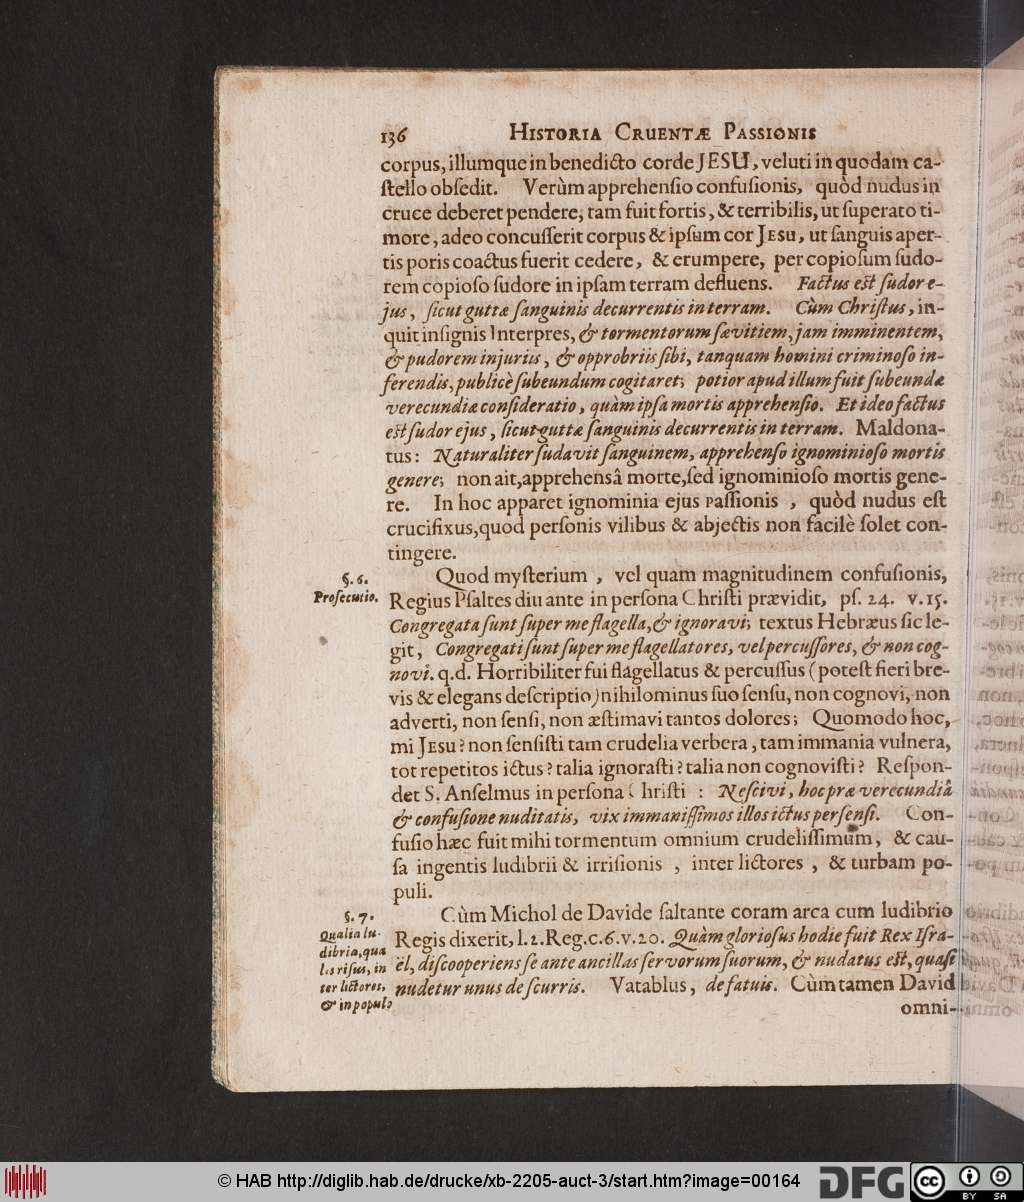 136 HISTORIA CRUENTÆ PASSIONIS
corpus, illumque in benedicto corde JESU, veluti in quodam ca-
ſtello obſedit. Verùm apprehenſio confuſionis, quòd nudus in
cruce deberet pendere, tam fuit fortis, & terribilis, ut ſuperato ti-
more, adeo concuſſerit corpus & ipſum cor JESU, ut ſanguis aper-
tis poris coactus fuerit cedere, & erumpere, per copioſum ſudo-
rem copioſo ſudore in ipſam terram defluens. Factus eſt ſudor e-
jus, ſicut guttæ ſanguinis decurrentis in terram. Cùm Chriſtus, in-
quit inſignis Interpres, & tormentorum ſævitiem, jam imminentem,
& pudorem injuriis, & opprobriis ſibi, tanquam homini criminoſo in-
ferendis, publicè ſubeundum cogitaret; potior apud illum fuit ſubeundæ
verecundiæ conſideratio, quàm ipſa mortis apprehenſio. Et ideo factus
eſt ſudor ejus, ſicut guttæ ſanguinis decurrentis in terram. Maldona-
tus: Naturaliter ſudavit ſanguinem, apprehenſo ignominioſo mortis
genere; non ait, apprehensâ morte, ſed ignominioſo mortis gene-
re. In hoc apparet ignominia ejus Paſſionis, quòd nudus eſt
crucifixus, quod perſonis vilibus & abjectis non facilè ſolet con-
tingere.
§. 6.
Proſecutio.
Quod myſterium, vel quàm magnitudinem confuſionis,
Regius Pſaltes diu ante in perſona Chriſti prævidit, pſ. 24. v. 15.
Congregata ſunt ſuper me flagella, & ignoravi; textus Hebræus ſic le-
git, Congregati ſunt ſuper me flagellatores, vel percuſſores, & non cog-
novi. q.d. Horribiliter fui flagellatus & percuſſus (poteſt fieri bre-
vis & elegans deſcriptio) nihilominus ſuo ſenſu, non cognovi, non
adverti, non ſenſi, non æſtimavi tantos dolores; Quomodo hoc,
mi JESU? non ſenſiſti tam crudelia verbera, tam immania vulnera,
tot repetitos ictus? talia ignoraſti? talia non cognoviſti? Reſpon-
det S. Anſelmus in perſona Chriſti: Neſcivi, hoc præ verecundiâ
& confuſione nuditatis, vix immaniſſimos illos ictus perſenſi. Con-
fuſio hæc fuit mihi tormentum omnium crudeliſſimum, & cau-
ſa ingentis ludibrii & irriſionis, inter lictores, & turbam po-
puli.
§. 7.
Qualia lu-
dibria, qua
les riſus, in
ter lictores,
& in populo
Cùm Michol de Davide ſaltante coram arca cum ludibrio
Regis dixerit, l. 2. Reg. c. 6. v. 20. Quàm glorioſus hodie fuit Rex Iſra-
ël, diſcooperiens ſe ante ancillas ſervorum ſuorum, & nudatus eſt, quaſi
nudetur unus de ſcurris. Vatablus, de fatuis. Cùm tamen David
omni-
© HAB http://diglib.hab.de/drucke/xb-2205-auct-3/start.htm?image=00164
DFG
cc BY SA